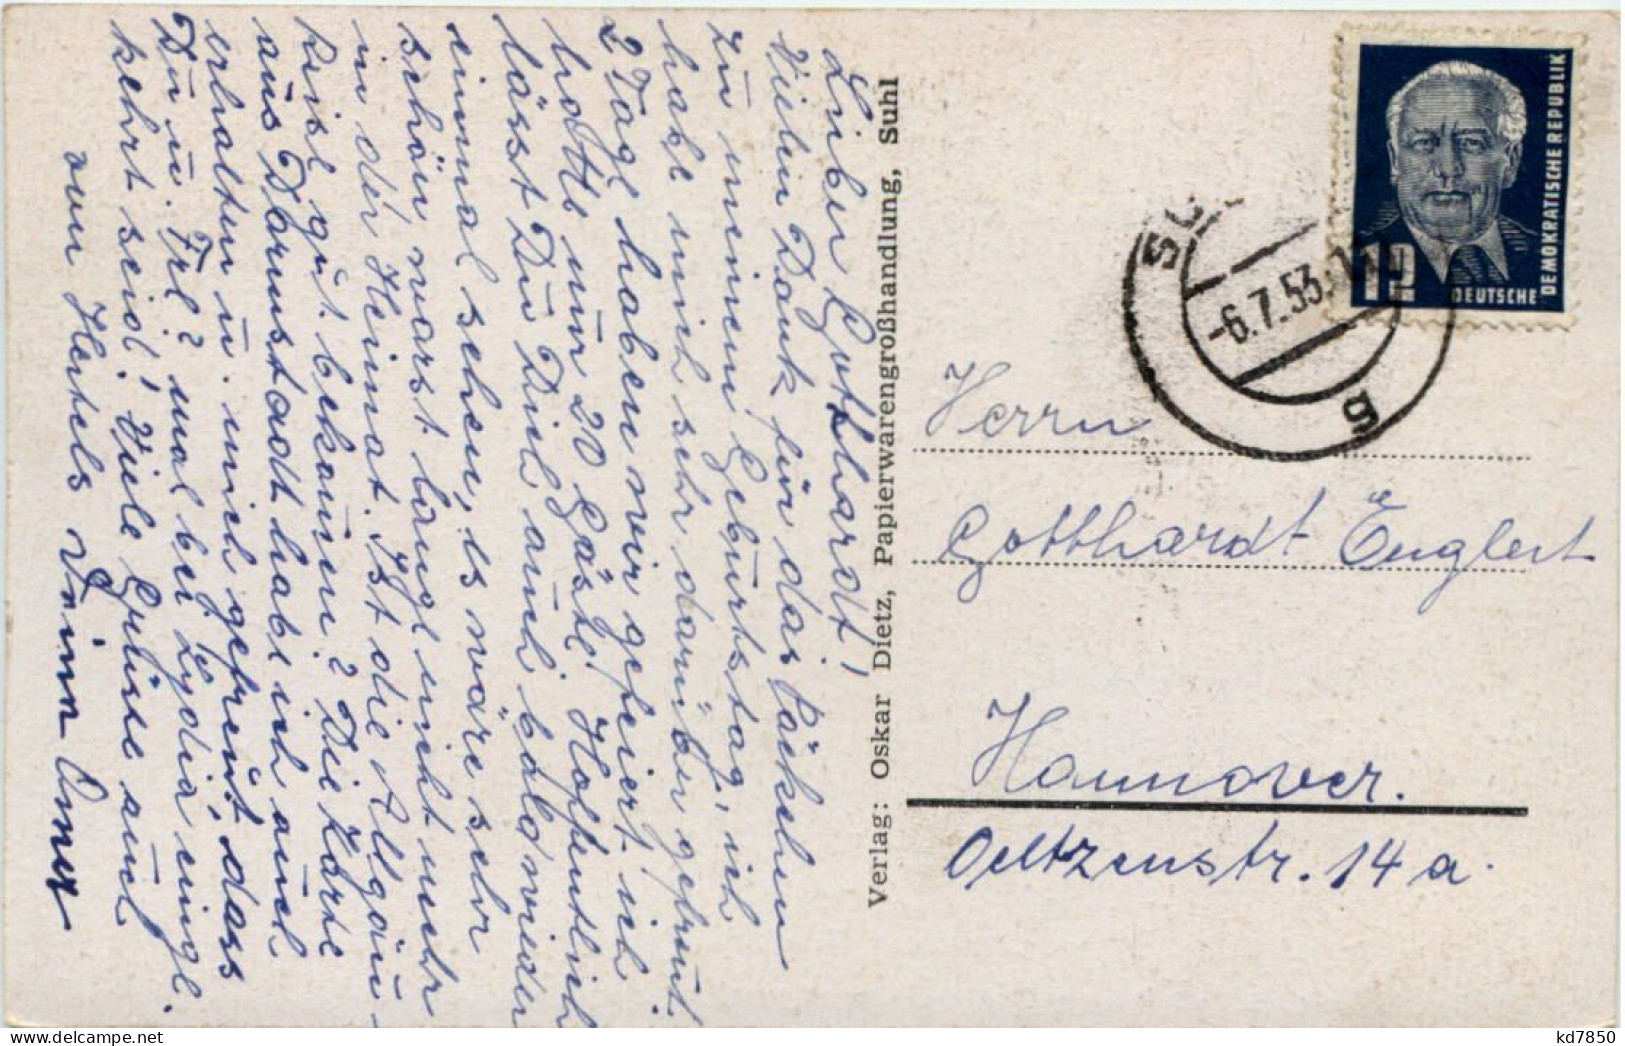 Lieber Gotthardt!
Vielen Dank für das Päckchen
zu meinem Geburtstag, ich
habe mich sehr darüber gefreut.
2 Tage haben wir gefeiert. ich
hatte nur 20 Gäste. Hoffentlich
lässt Du Dich auch bald wieder
einmal sehen, es wäre sehr
schön warst lange nicht mehr
in der Heimat. Ist die Allgäu-
reise gut bekommen? Die Karte
aus Darmstadt habe ich auch
erhalten u. mich gefreut, dass
Du u. Frl? mal bei Lydia eingekehrt
kehrt seid! Viele Grüsse auch
von Hertels Deine Anna
Verlag: Oskar Dietz, Papierwarengroßhandlung, Suhl
12
DEUTSCHE
DEMOKRATISCHE REPUBLIK
-6.7.53
g
Herrn
Gotthardt Englert
Hannover.
Oeltzenstr. 14 a.
kd7850